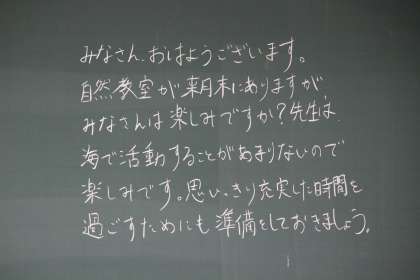 みなさん、おはようございます。
自然教室が来月末にありますが、
みなさんは楽しみですか?先生は、
海で活動することがあまりないので
楽しみです。思いっきり充実した時間を
過ごすためにも準備をしておきましょう。